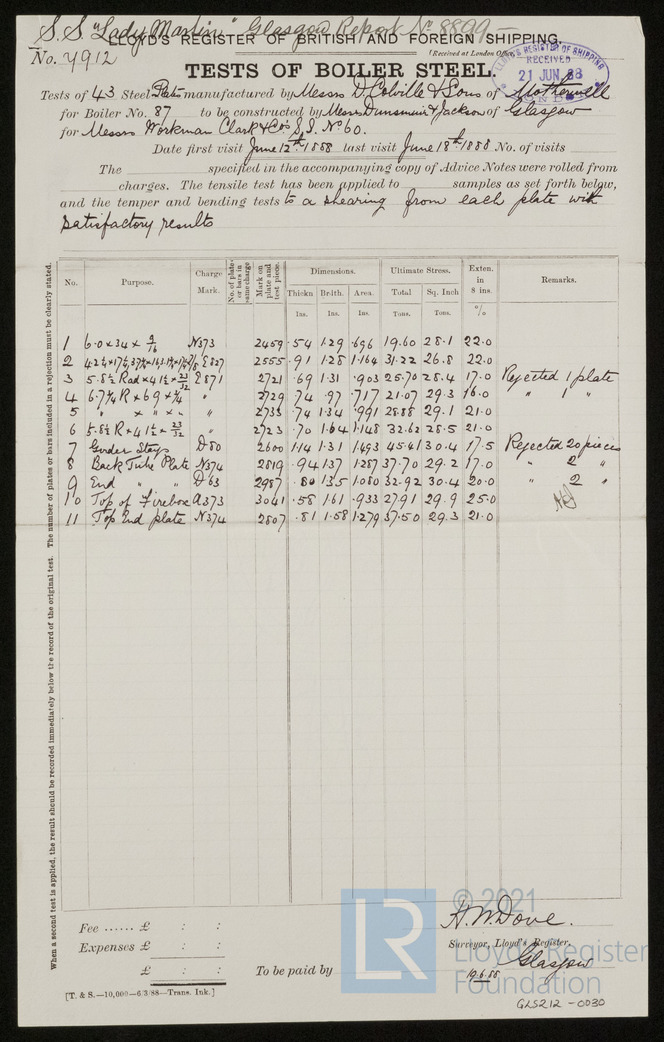 S.S. "Lady Martin" Glasgow Report No 8899
LLOYD'S REGISTER OF BRITISH AND FOREIGN SHIPPING.
No. 7912
(Received at London Office
LLOYD'S REGISTER OF SHIPPING
RECEIVED
21 JUN 88
TESTS OF BOILER STEEL.
Tests of 43 Steel Plates manufactured by Messrs D. Colville & Sons of Motherwell
for Boiler No. 87 to be constructed by Messrs Dunsmuir & Jackson of Glasgow
for Messrs Workman Clark & Co's S.S. No 60.
Date first visit June 12th 1888 last visit June 18th 1888 No. of visits
The specified in the accompanying copy of Advice Notes were rolled from
charges. The tensile test has been applied to samples as set forth below,
and the temper and bending tests to a shearing from each plate with
satisfactory results
No. Purpose. Charge Mark. No. of plates or bars in same charge Mark on plate and test piece. Dimensions. Ultimate Stress. Exten. in 8 ins. Remarks.
Thickn Brdth. Area. Total Sq. Inch
Ins. Ins. Ins. Tons. Tons. %
1 6.0 x 34 x 9/16 N373 2459 .54 1.29 .696 19.60 28.1 22.0
2 E827 2555 .91 1.28 1.164 31.22 26.8 22.0
3 5.8½ Rad x 41½ x 23/32 E871 2721 .69 1.31 .903 25.70 28.4 17.0 Rejected 1 plate
4 6.7¾ R x 69 x ¾ " 2729 .74 .97 .717 21.07 29.3 16.0 " 1 "
5 " x " x " " 2738 .74 1.34 .991 28.88 29.1 21.0
6 5.8½ R x 41½ x 23/32 " 2723 .70 1.64 1.148 32.62 28.5 21.0
7 Girder Stays D80 2600 1.14 1.31 1.493 45.41 30.4 17.5 Rejected 20 pieces
8 Back Tube Plate N374 2819 .94 1.37 1.287 37.70 29.2 17.0 " 2 "
9 End " " D63 2987 .80 1.35 1.080 32.92 30.4 20.0 " 2 "
10 Top of Firebox A373 3041 .58 1.61 .933 27.91 29.9 25.0
11 Top End plate N374 2807 .81 1.58 1.279 37.50 29.3 21.0
When a second test is applied, the result should be recorded immediately below the record of the original test. The number of plates or bars included in a rejection must be clearly stated.
Fee ...... £ : :
Expenses £ : :
£ : :
To be paid by
H. W. Dove.
Surveyor, Lloyd's Register,
Glasgow
19.6.88
[T. & S.—10,000—6/3/88—Trans. Ink.]
GLS212-0030
© 2021
LR
Lloyd's Register
Foundation